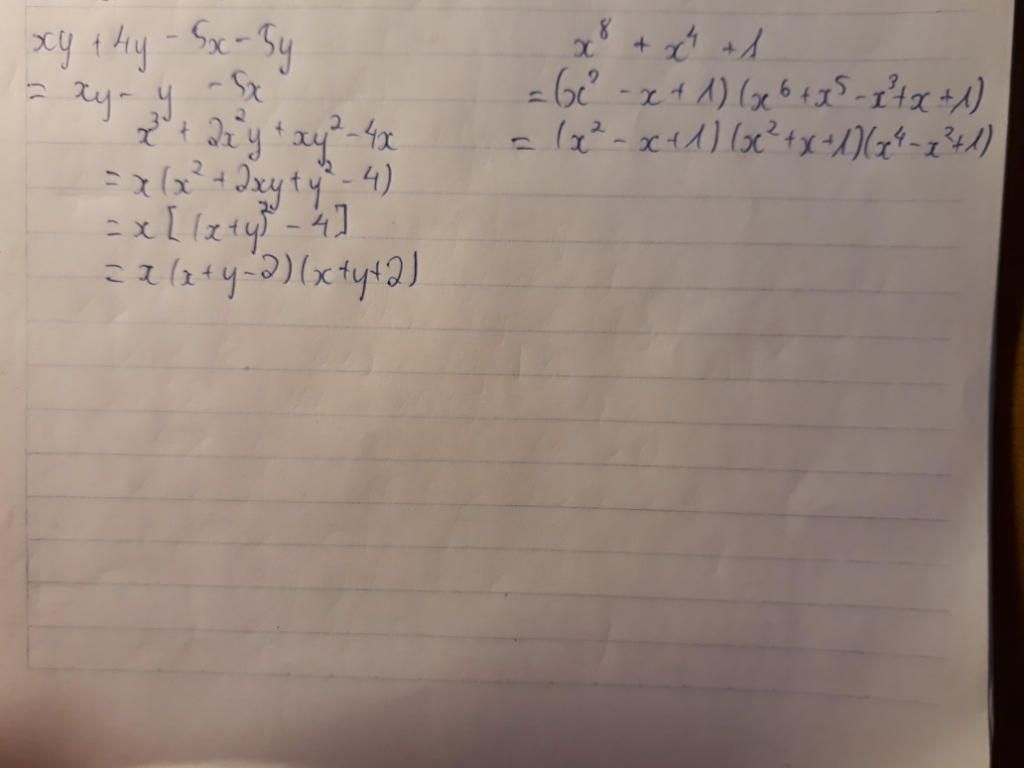 xy + 4y - 5x - 5y
= xy - y - 5x
x³ + 2x²y + xy² - 4x
= x(x² + 2xy + y² - 4)
= x[(x+y)² - 4]
= x(x+y-2)(x+y+2)
x⁸ + x⁴ + 1
= (x² - x + 1)(x⁶ + x⁵ - x³ + x + 1)
= (x² - x + 1)(x² + x + 1)(x⁴ - x² + 1)